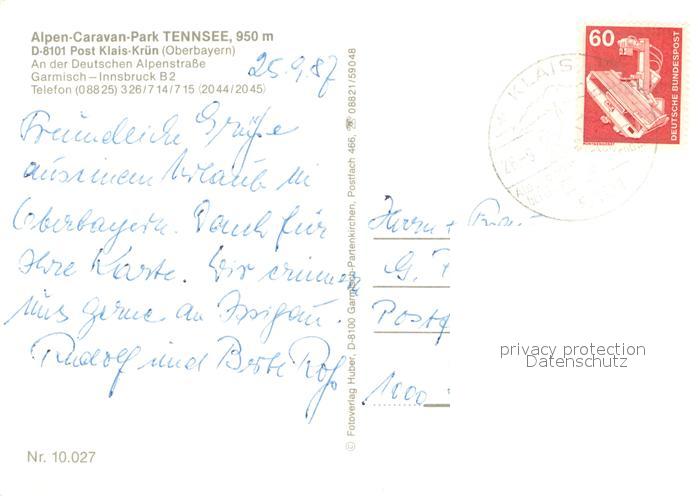 Alpen-Caravan-Park TENNSEE, 950 m
D-8101 Post Klais-Krün (Oberbayern)
An der Deutschen Alpenstraße
Garmisch – Innsbruck B 2
Telefon (0 88 25) 3 26 / 7 14 / 7 15 (20 44 / 20 45)
25.9.87
Freundliche Grüße
aus einem Urlaub in
Oberbayern. Dank für
Ihre Karte. Wir erinnern
uns gerne an
Rudolf und
© Fotoverlag Huber, D-8100 Garmisch-Partenkirchen, Postfach 466, ☎ 0 88 21/5 90 48
60
DEUTSCHE BUNDESPOST
KLAIS
Herrn + 
G.
Post
1000
privacy protection
Datenschutz
Nr. 10.027